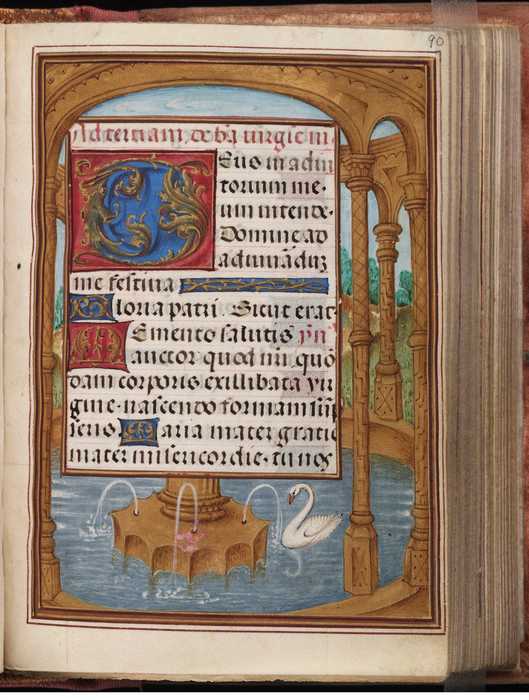 90
Ad terciam. de bt̃a virgie m
Deus in adiu
torium me
um intende.
Domine ad
adiuuãduȝ
me festina
Gloria patri. Sicut erat
Memento salutis ym̃
auctor quod nr̃i quõ
dam corporis ex illibata vir
gine. nascendo formam sũp
seris. Maria mater gratie
mater misericordie. tu nos